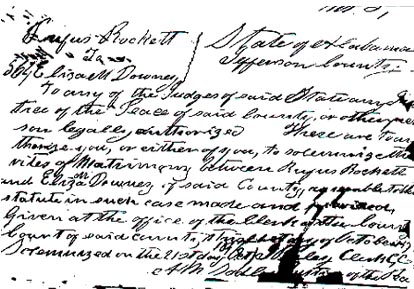 Rufus Rockett
To
Eliza M Downey
State of Alabama
Jefferson County
To any of the Judges of said State any Jus
tice of the Peace of said County, or other per
son legally authorized These are to au
thorize you, or either of you, to solemnize the
rites of Matrimony between Rufus Rockett
and Eliza M Downey of said County, agreeable to the
statute in such case made and provided,
Given at the office of the Clerk of the County
Court of said county, day of October
Solemnized on the 21st day Oct Clerk C C
of the Peace